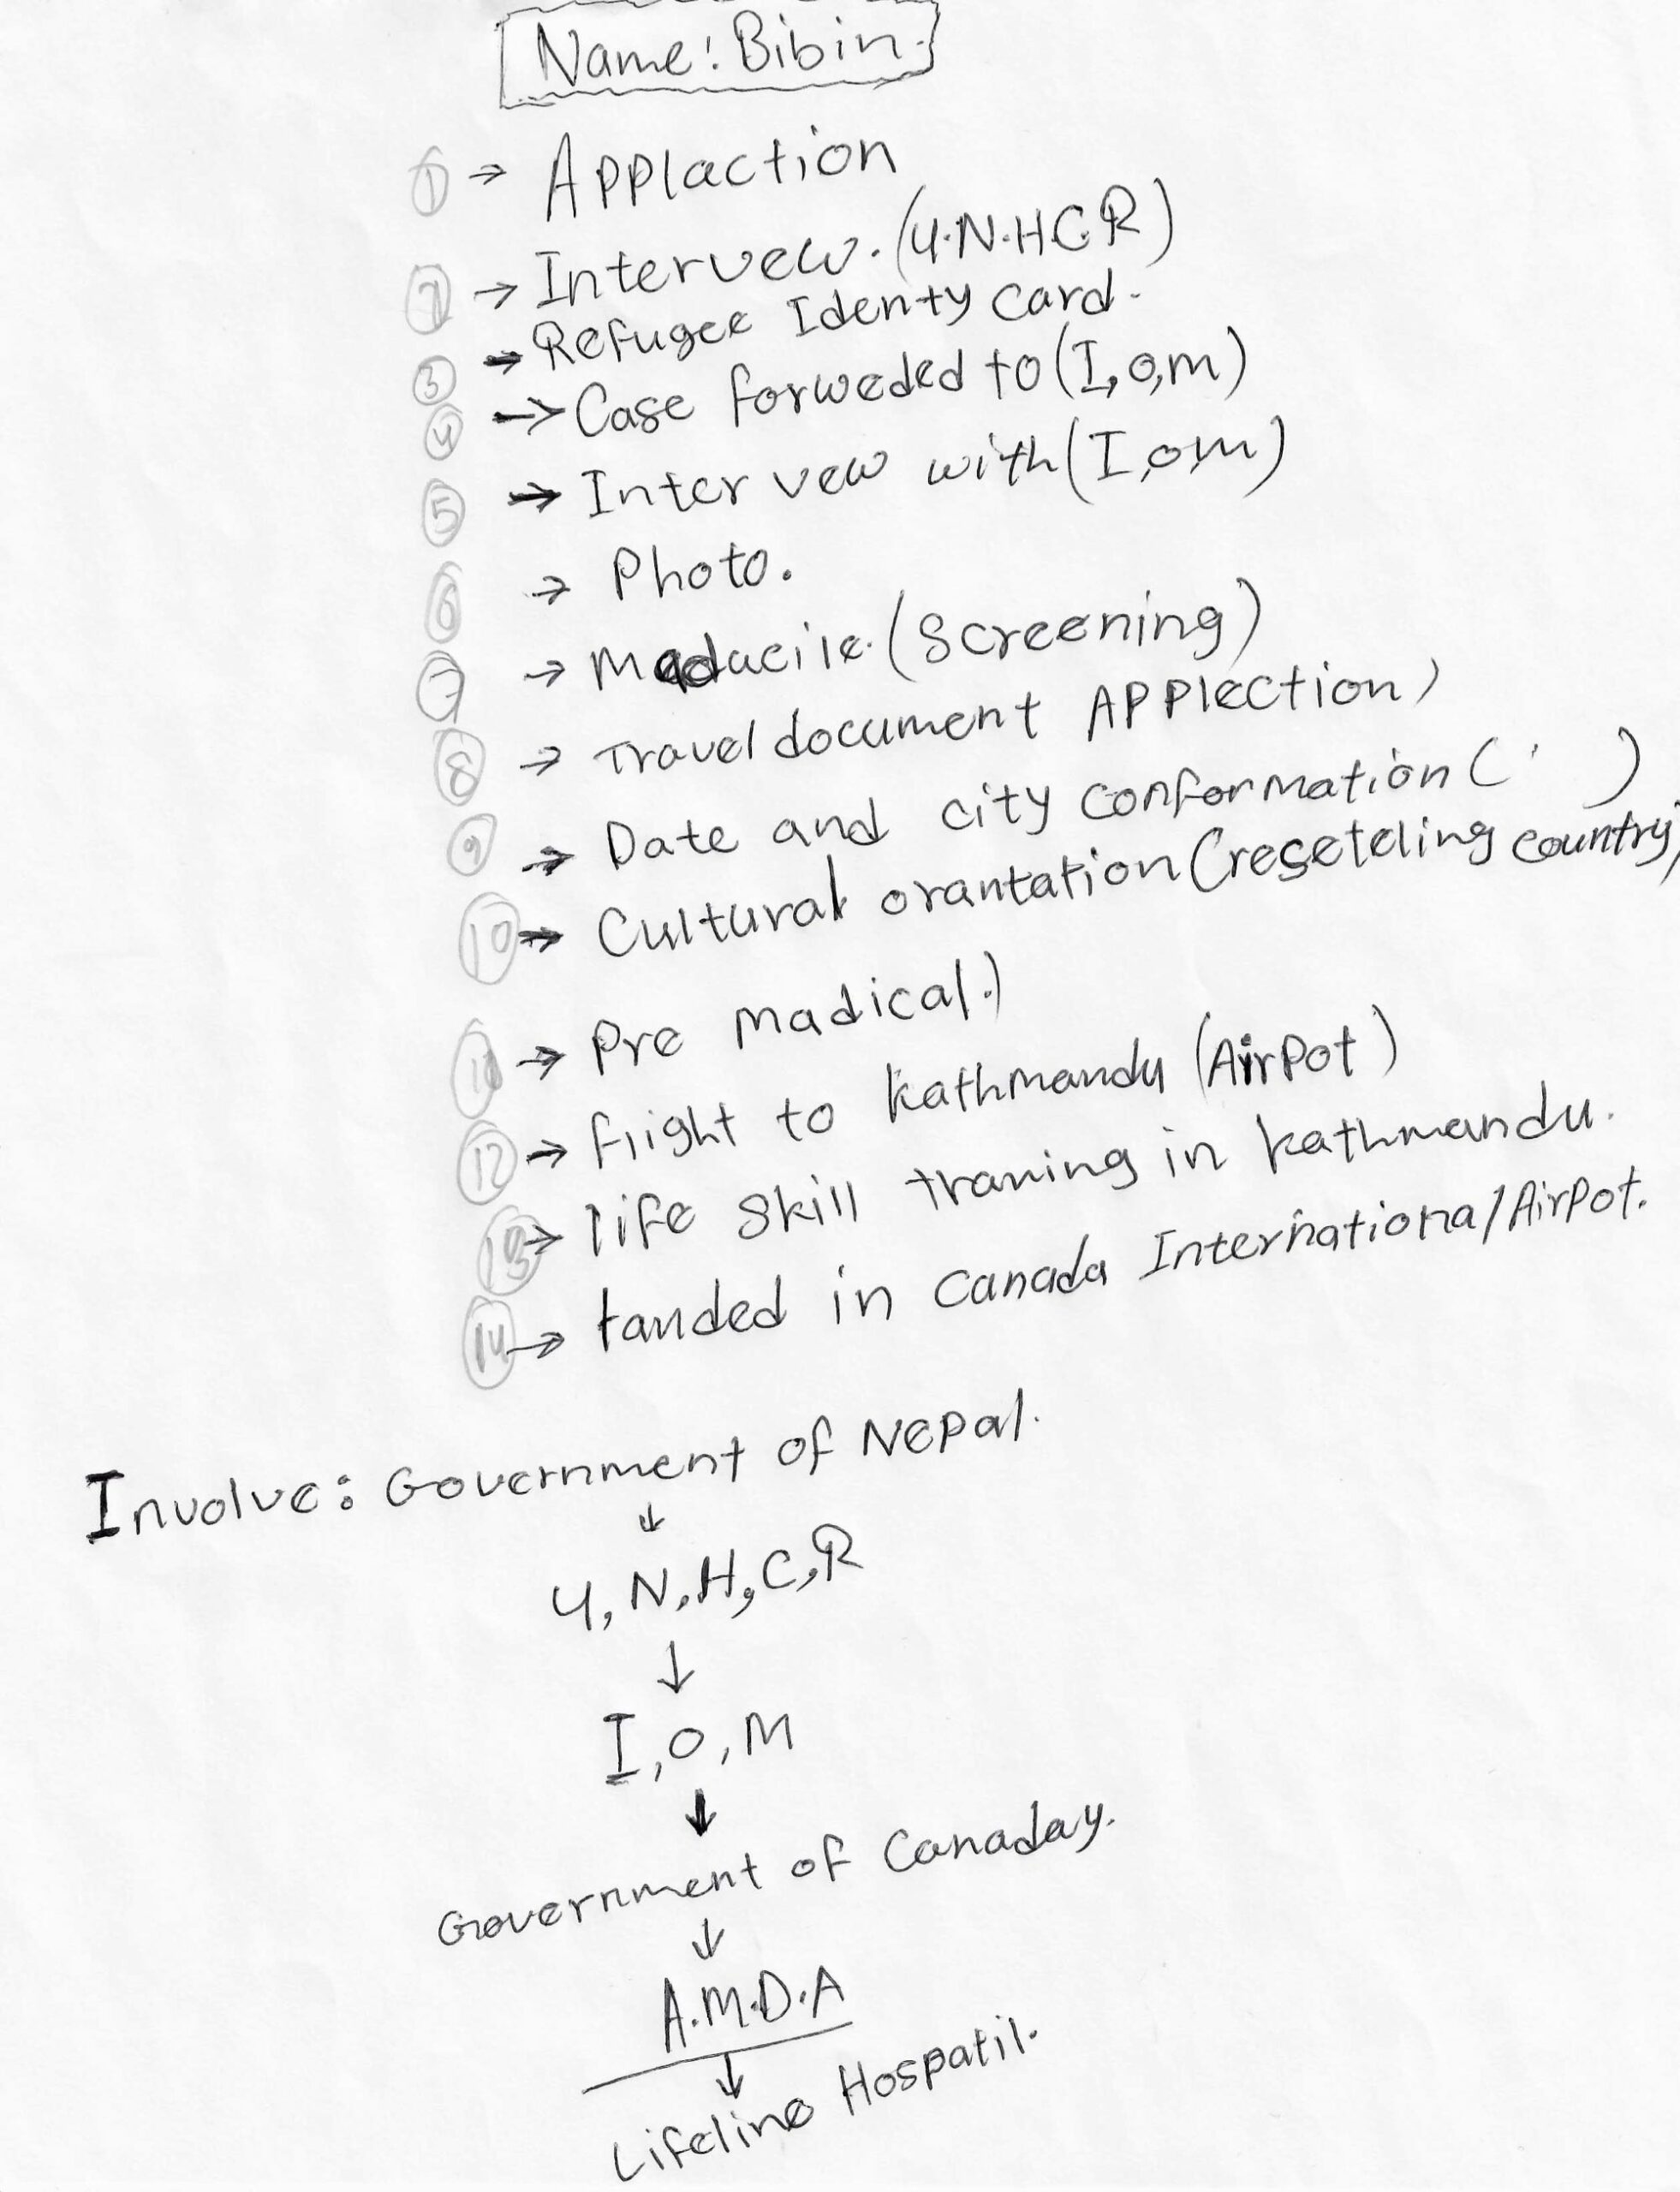 Name: Bibin.
① → Applaction
② → Intervew. (U.N.H.C.R)
③ → Refugee Identy card.
④ → Case forweded to (I,o,m)
⑤ → Inter vew with (I,o,m)
⑥ → Photo.
⑦ → (Screening)
⑧ → Travel document Applection)
⑨ → Date and city conformation ( )
⑩ → Cultural orantation (reseteling country)
⑪ → Pre madical.)
⑫ → flight to kathmandu (AirPot)
⑬ → life skill traning in kathmandu.
⑭ → landed in canada International AirPot.
Involve: Government of Nepal.
↓
U, N, H, C, R
↓
I, O, M
↓
Government of Canaday.
↓
A.M.D.A
↓
Lifeline Hospatil.